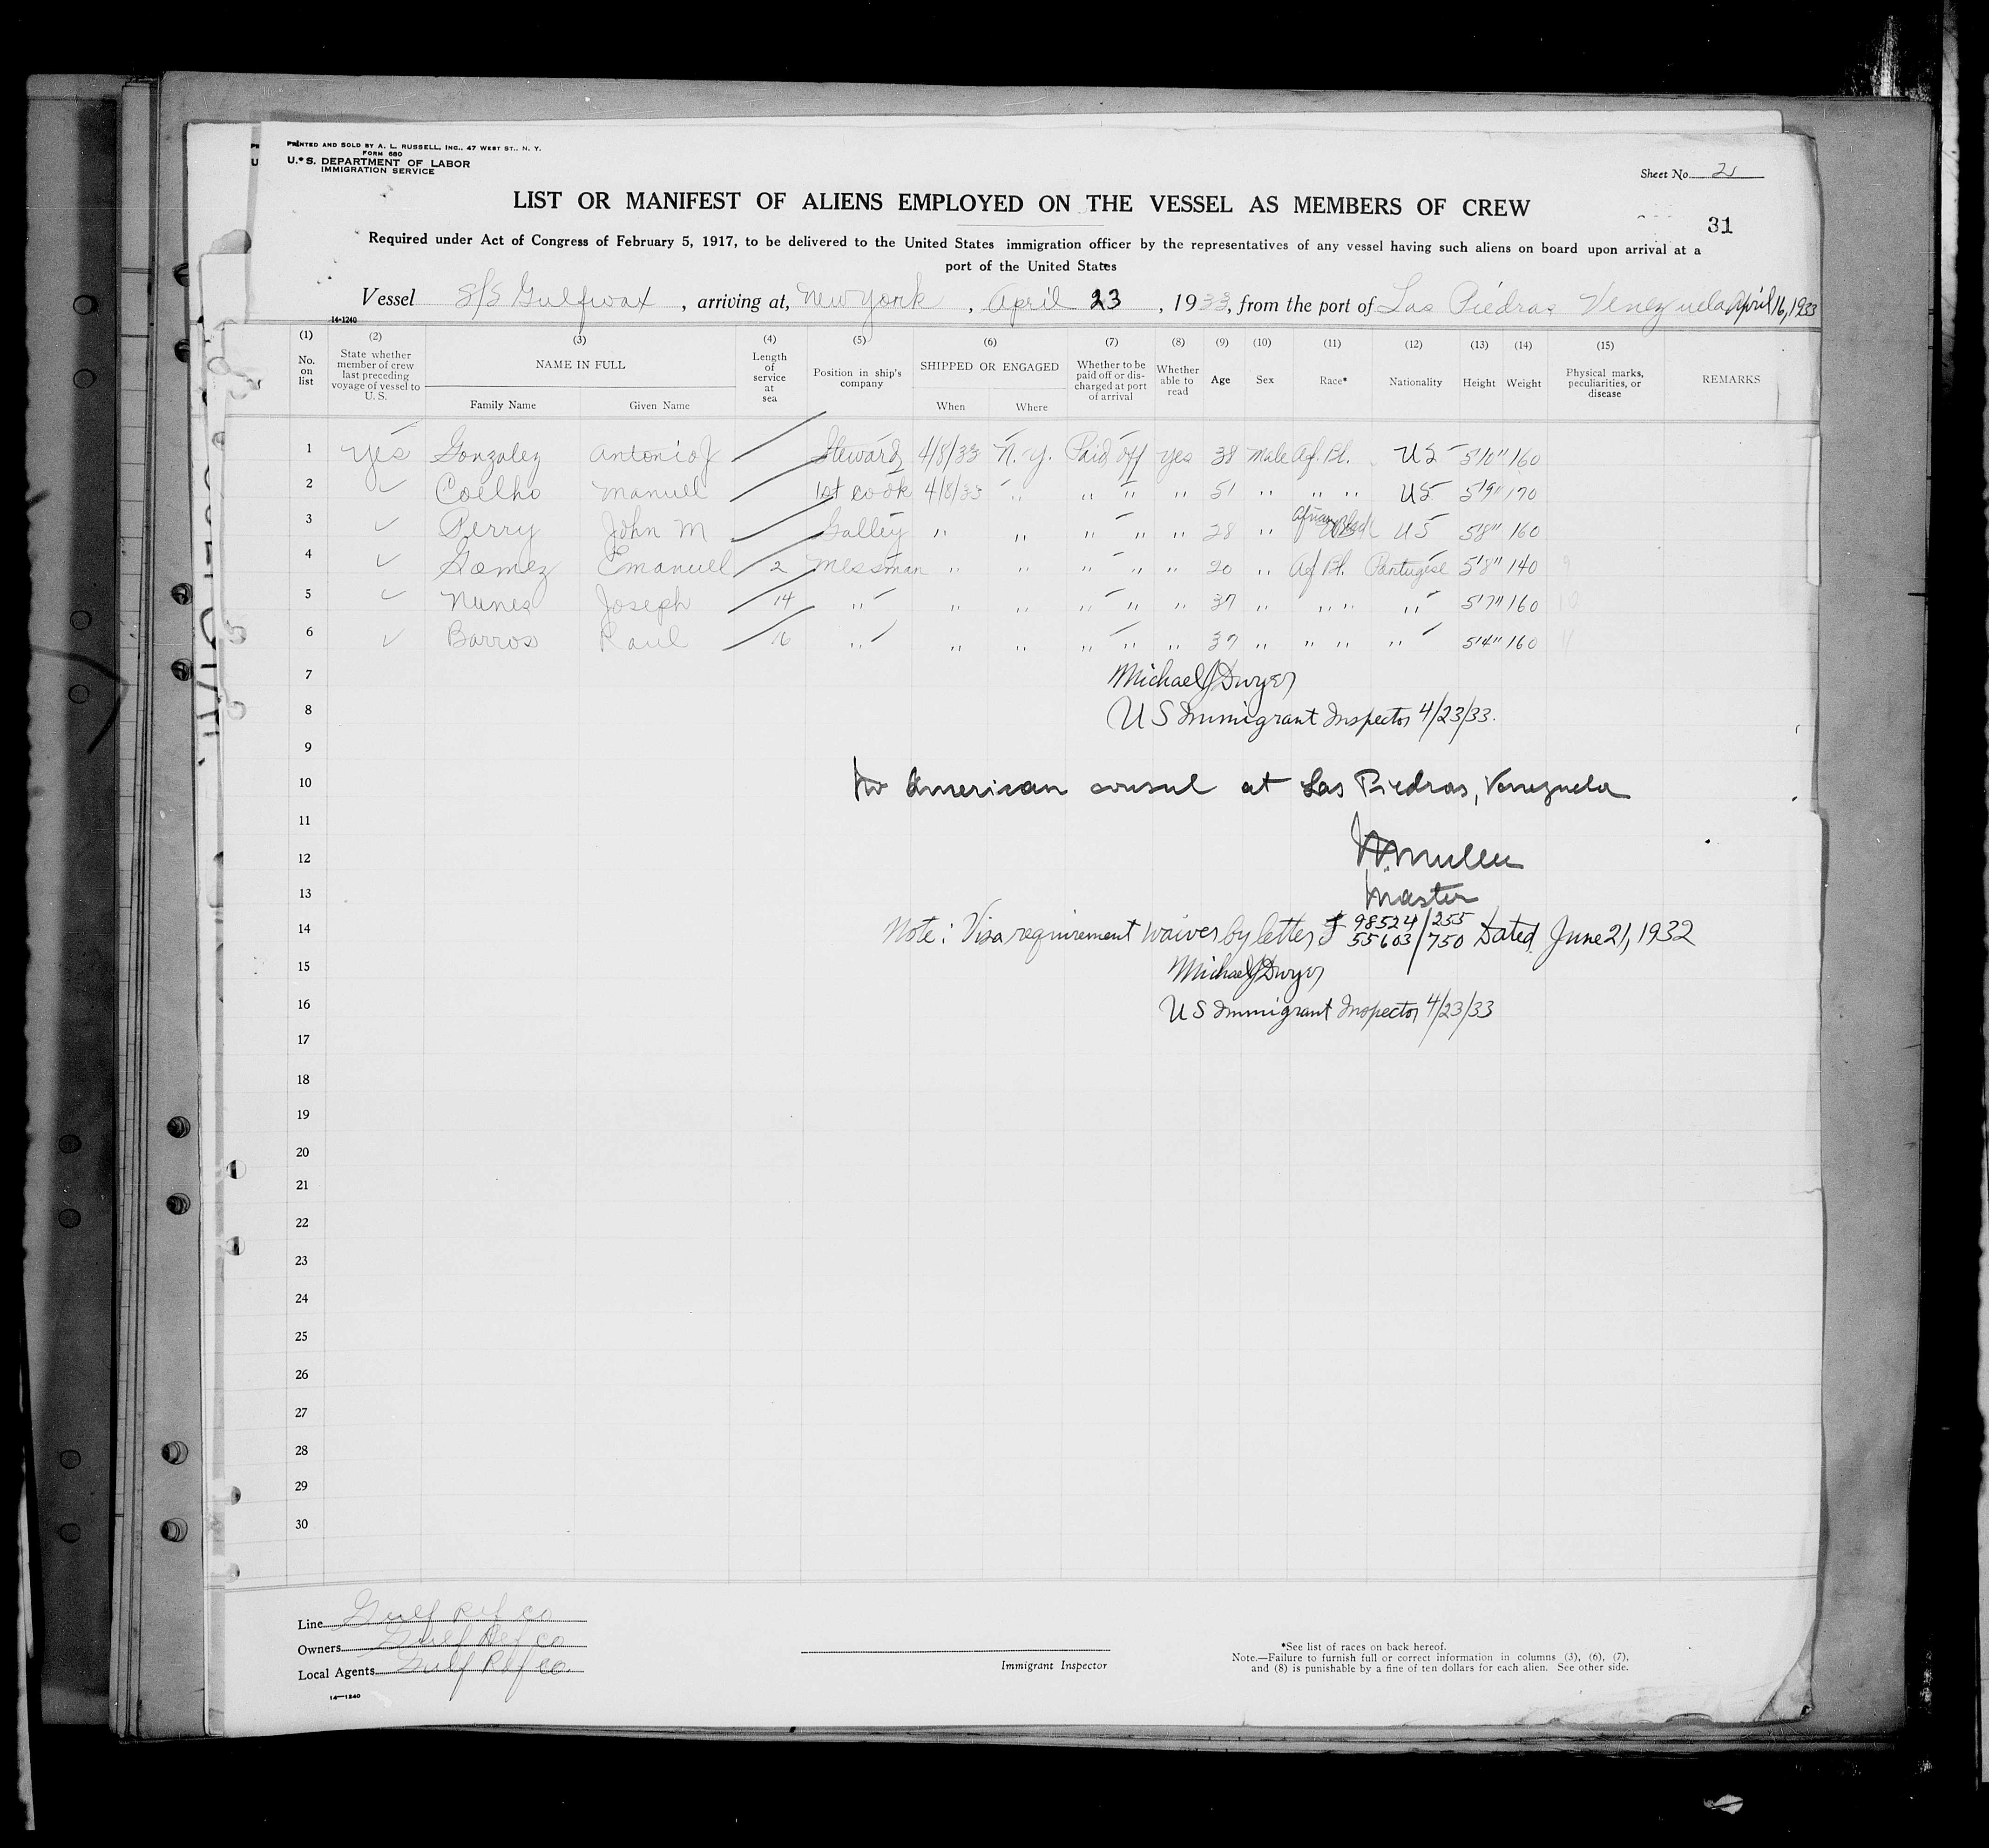 PRINTED AND SOLD BY A. L. RUSSELL, INC., 47 WEST ST., N. Y.
FORM 680
U. S. DEPARTMENT OF LABOR
IMMIGRATION SERVICE
Sheet No. 2
LIST OR MANIFEST OF ALIENS EMPLOYED ON THE VESSEL AS MEMBERS OF CREW
31
Required under Act of Congress of February 5, 1917, to be delivered to the United States immigration officer by the representatives of any vessel having such aliens on board upon arrival at a
port of the United States
Vessel S/S Gulfwax, arriving at, New York, April 23, 1933, from the port of Las Piedras Venezuela April 16, 1933
14-1240
(1) No. on list
(2) State whether member of crew last preceding voyage of vessel to U. S.
(3) NAME IN FULL Family Name Given Name
(4) Length of service at sea
(5) Position in ship's company
(6) SHIPPED OR ENGAGED When Where
(7) Whether to be paid off or discharged at port of arrival
(8) Whether able to read
(9) Age
(10) Sex
(11) Race*
(12) Nationality
(13) Height
(14) Weight
(15) Physical marks, peculiarities, or disease
REMARKS
1 Yes Gonzalez Antonio J Steward 4/8/33 N.Y. Paid off yes 38 male Af. Bl. US 5'10" 160
2 ✓ Coelho Manuel 1st cook 4/8/33 " " " " 51 " " " US 5'9" 170
3 ✓ Perry John M Galley " " " " " 28 " African Black US 5'8" 160
4 ✓ Gomez Emanuel 2 Messman " " " " " 20 " Af Bl. Portugese 5'8" 140 9
5 ✓ Nunes Joseph 14 " " " " " " 37 " " " " 5'7" 160 10
6 ✓ Barros Raul 16 " " " " " " 37 " " " " 5'4" 160 11
7 Michael J Dwyer
8 US Immigrant Inspector 4/23/33.
9
10 No American consul at Las Piedras, Venezuela
11
12
13 Master
14 Note: Visa requirement waived by letter 98524/255 55603/750 Dated June 21, 1932
15 Michael J Dwyer
16 US Immigrant Inspector 4/23/33
17
18
19
20
21
22
23
24
25
26
27
28
29
30
Line Gulf Ref Co
Owners Gulf Ref Co
Local Agents Gulf Ref Co.
14—1240
Immigrant Inspector
*See list of races on back hereof.
Note.—Failure to furnish full or correct information in columns (3), (6), (7),
and (8) is punishable by a fine of ten dollars for each alien. See other side.